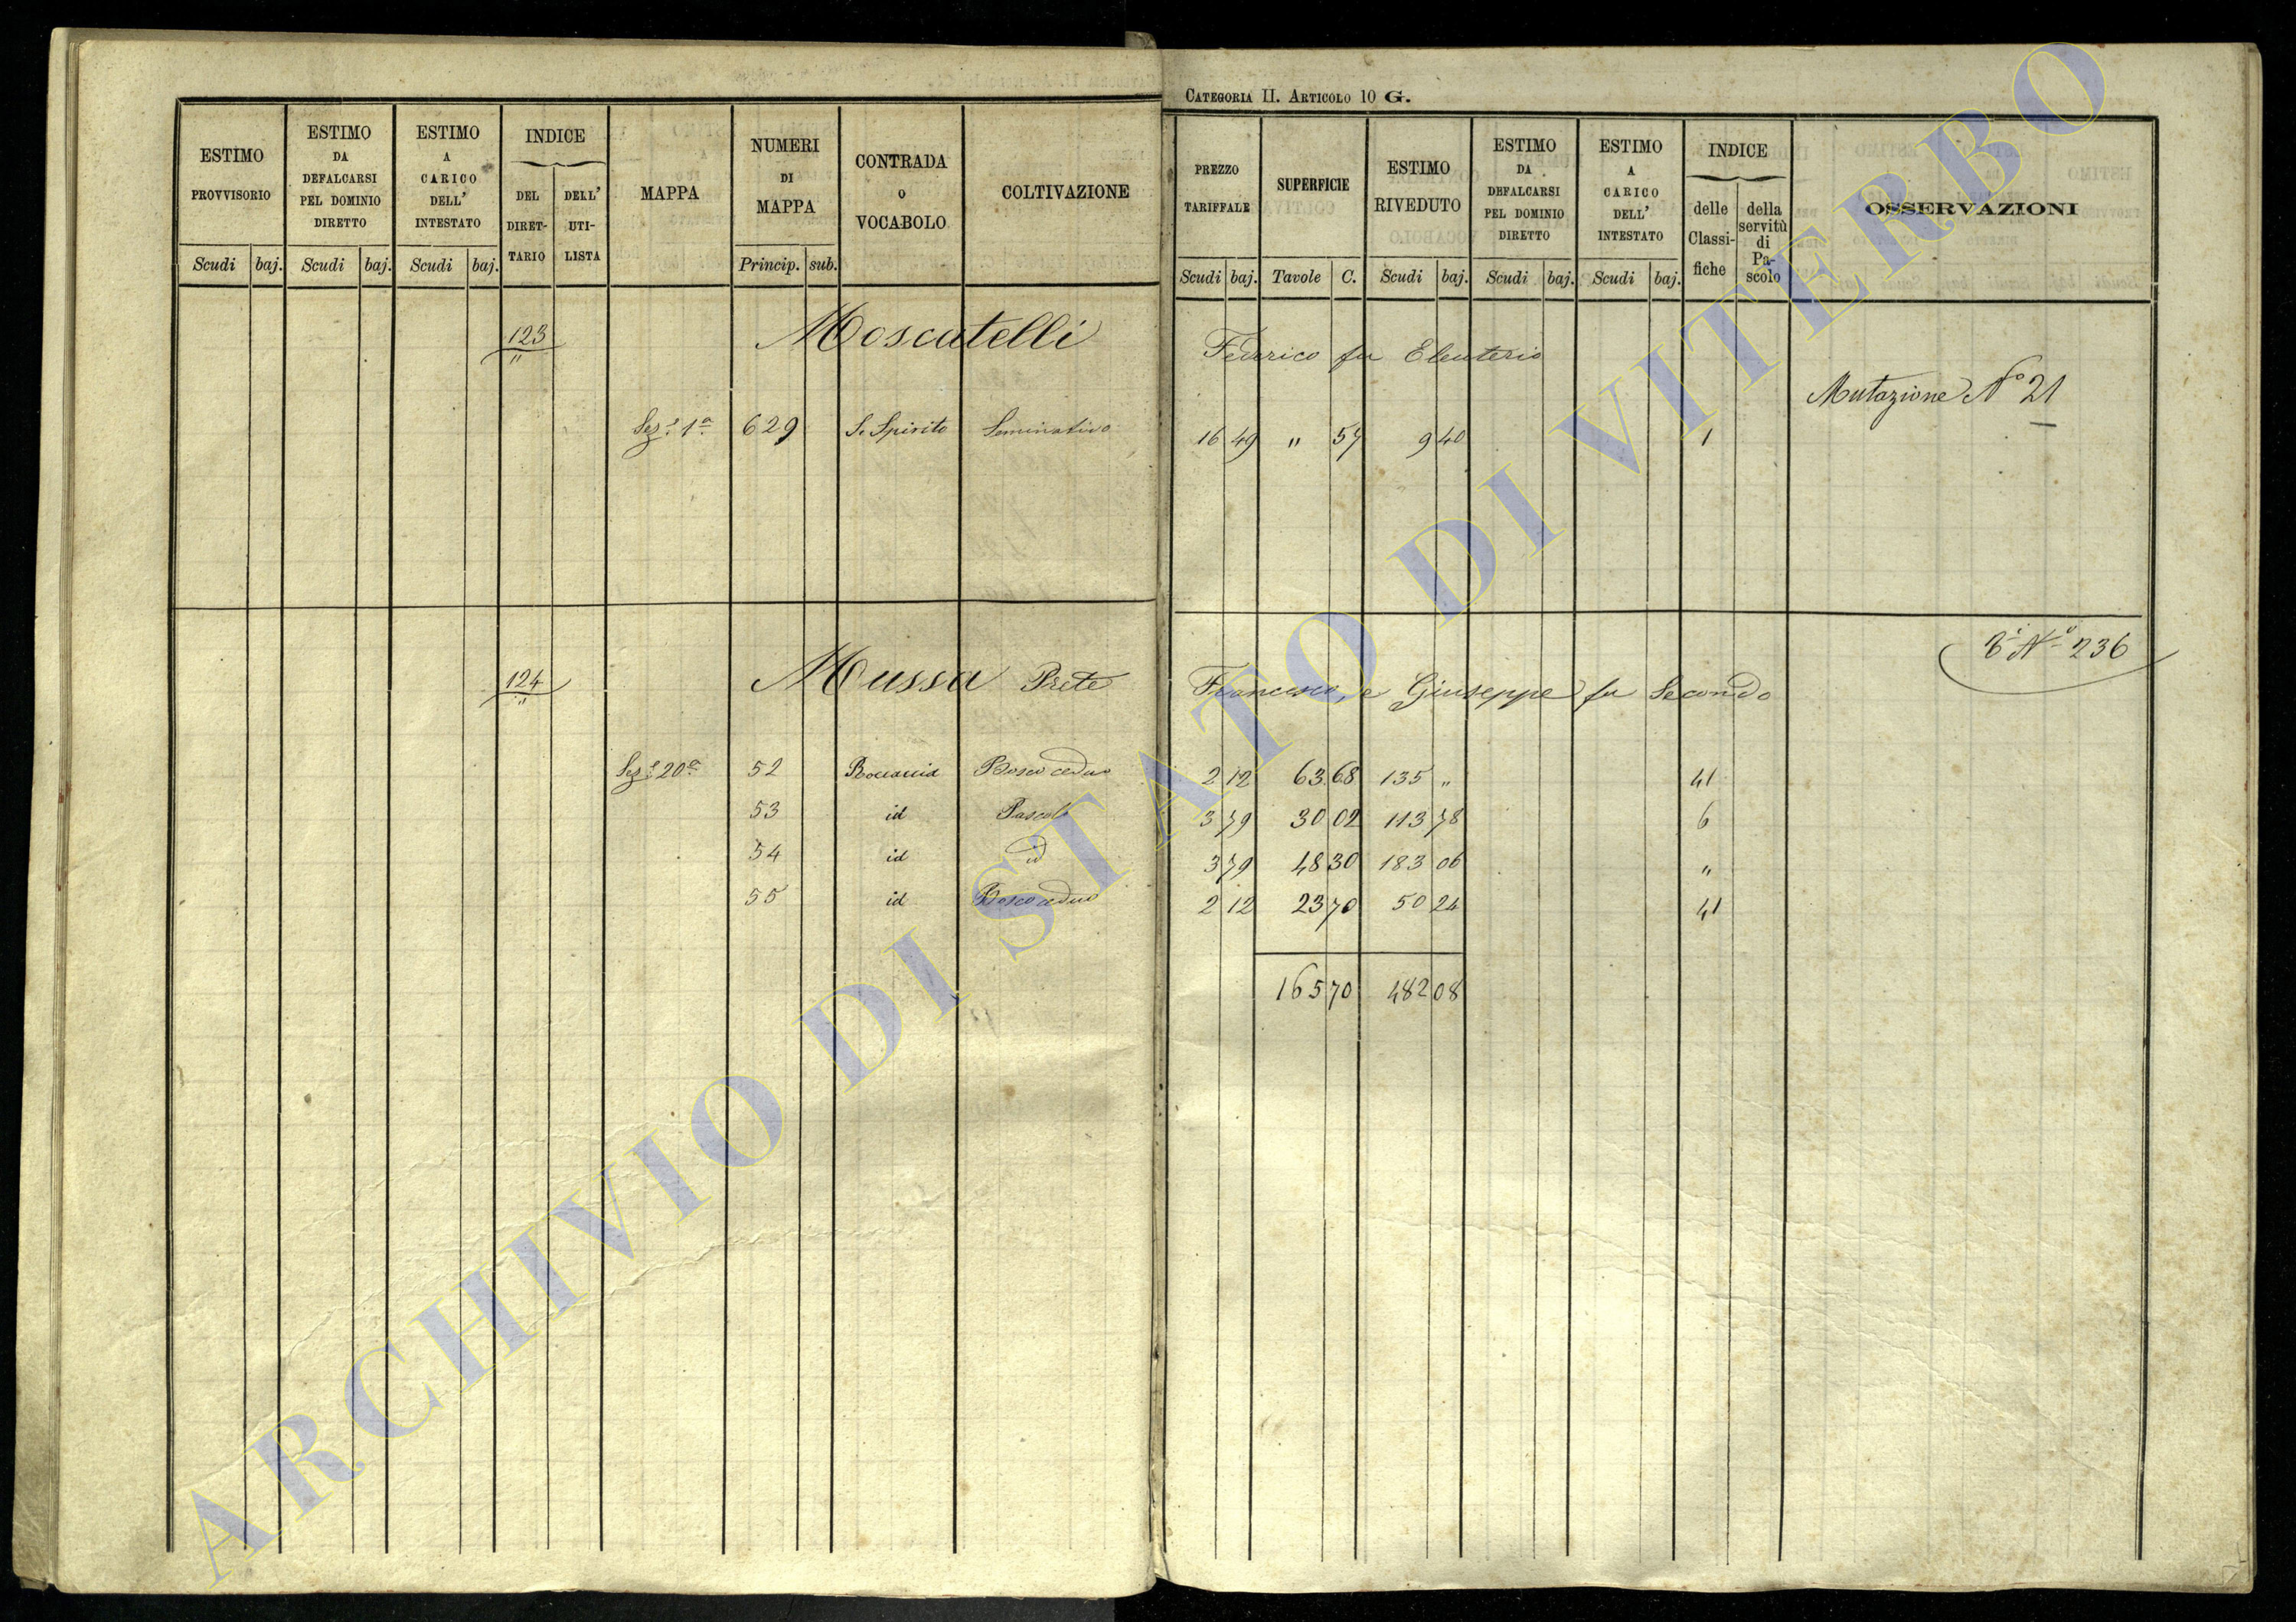 CATEGORIA II. ARTICOLO 10 G.
ESTIMO PROVVISORIO Scudi baj.
ESTIMO DA DEFALCARSI PEL DOMINIO DIRETTO Scudi baj.
ESTIMO A CARICO DELL' INTESTATO Scudi baj.
INDICE DEL DIRET-TARIO DELL' UTI-LISTA
MAPPA
NUMERI DI MAPPA Princip. sub.
CONTRADA O VOCABOLO
COLTIVAZIONE
PREZZO TARIFFALE Scudi baj.
SUPERFICIE Tavole C.
ESTIMO RIVEDUTO Scudi baj.
ESTIMO DA DEFALCARSI PEL DOMINIO DIRETTO Scudi baj.
ESTIMO A CARICO DELL' INTESTATO Scudi baj.
INDICE delle Classi-fiche della servitù di Pa-scolo
OSSERVAZIONI
123 Moscatelli Federico fu Eleuterio
"
Mutazione N° 21
Sez.e 1a 629 S. Spirito Seminativo 16 49 " 57 9 40 1
N° 236
124 Mussa Prete Francesco, e Giuseppe fu Secondo
"
Sez.e 20a 52 Bosco ceduo 2 12 63 68 135 " 41
53 id Pascolo 3 79 30 02 113 78 6
54 id id 3 79 48 30 183 06 "
55 id Bosco ceduo 2 12 23 70 50 24 41
165 70 482 08
ARCHIVIO DI STATO DI VITERBO